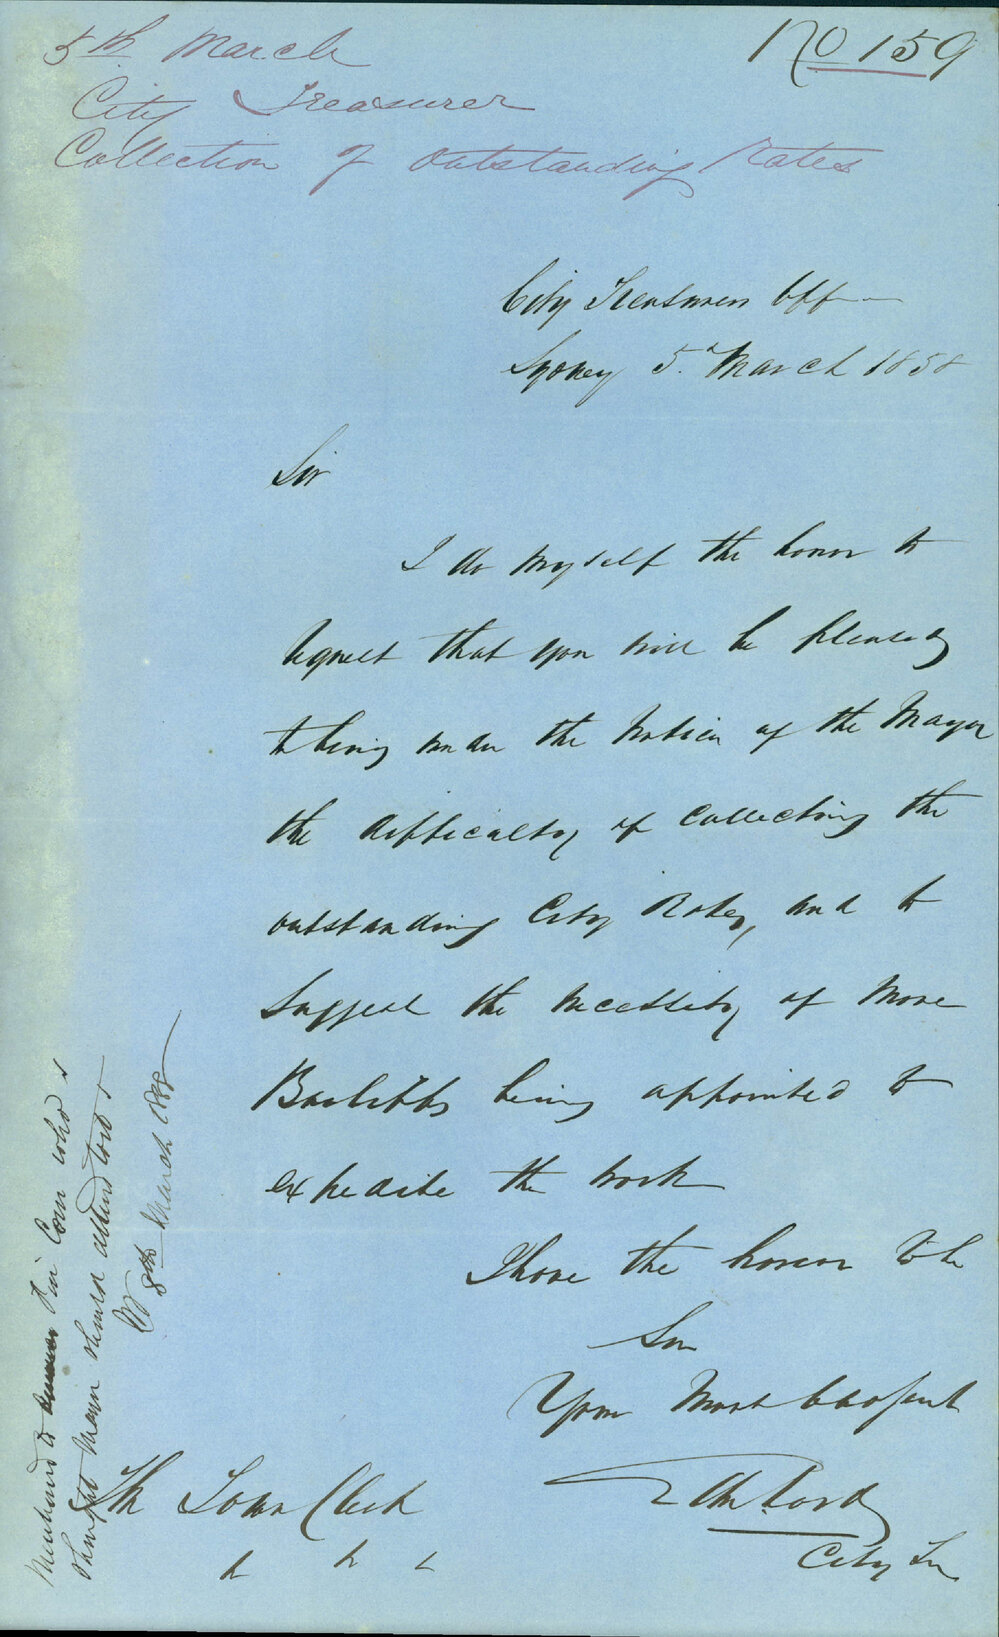 No 159
5th March
City Treasurer
Collection of Outstanding Rates
City Treasurers Off
Sydney 5th March 1858
Sir
I do myself the honor to
request that you will be pleased
to bring under the Notice of the Mayor
the difficulty of collecting the
outstanding City Rates, and to
suggest the necessity of more
Bailiffs being appointed to
expedite the work
I have the honor to be
Sir
Your Most Obedient
City Tr
The Town Clerk
Mentioned to Fin Com who s
thought Mayor should attend to it
8th March 1858